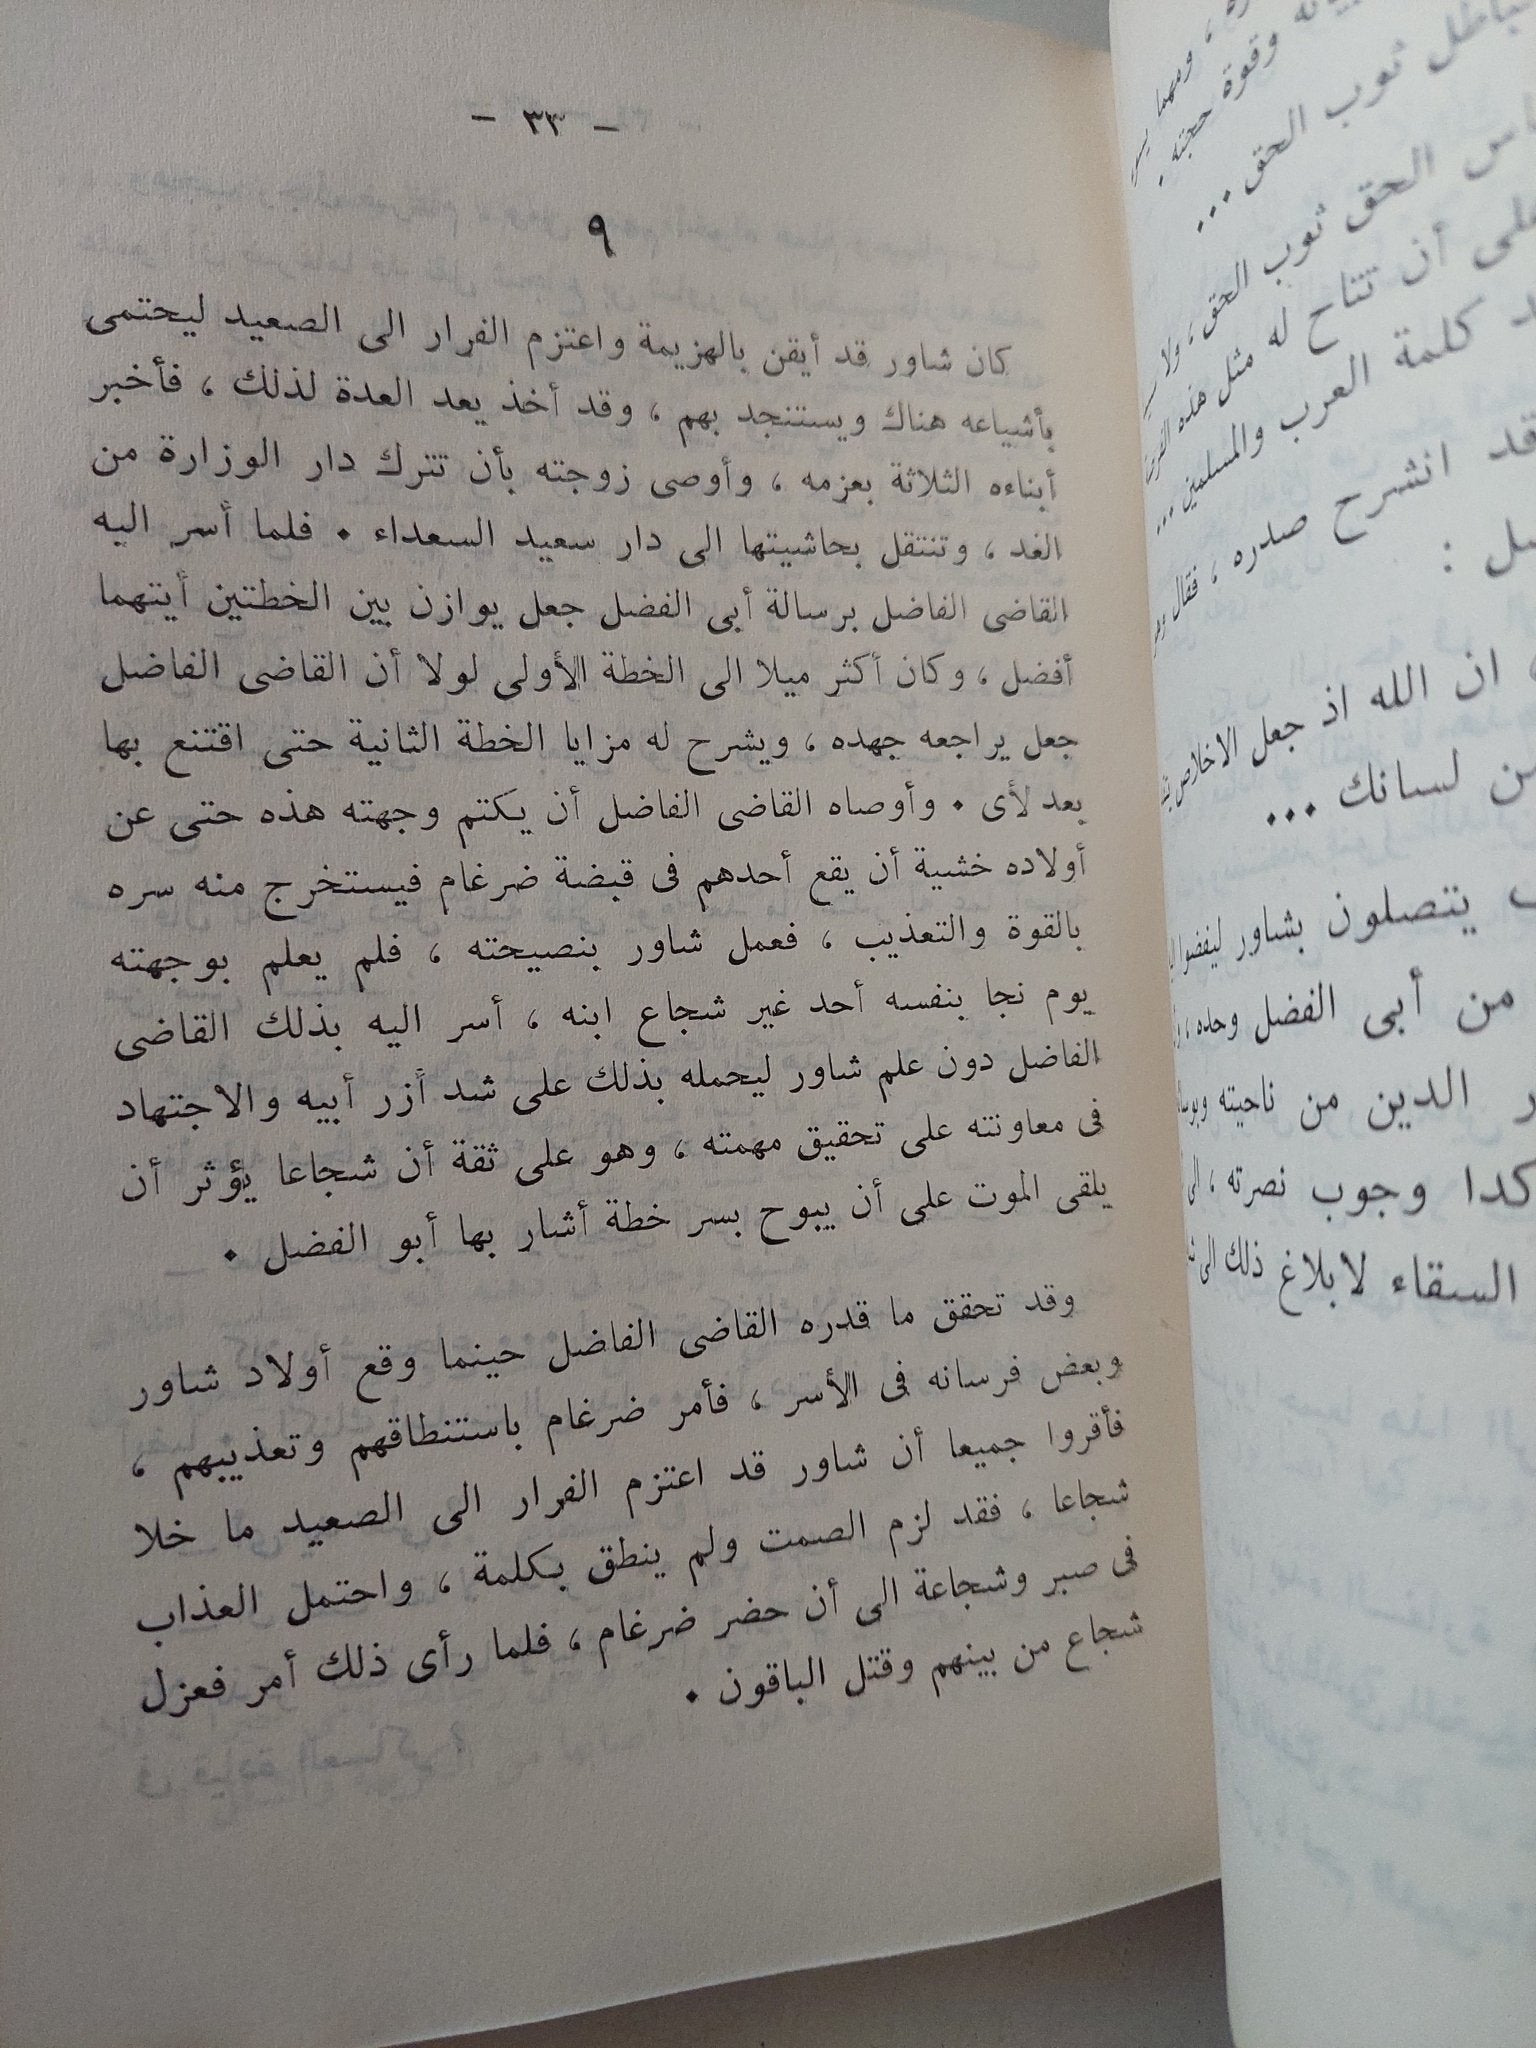 - ٣٣ -
٩
كان شاور قد أيقن بالهزيمة واعتزم الفرار الى الصعيد ليحتمى
بأشياعه هناك ويستنجد بهم ، وقد أخذ يعد العدة لذلك ، فأخبر
أبناءه الثلاثة بعزمه ، وأوصى زوجته بأن تترك دار الوزارة من
الغد ، وتنتقل بحاشيتها الى دار سعيد السعداء . فلما أسر اليه
القاضى الفاضل برسالة أبى الفضل جعل يوازن بين الخطتين أيتهما
أفضل ، وكان أكثر ميلا الى الخطة الأولى لولا أن القاضى الفاضل
جعل يراجعه جهده ، ويشرح له مزايا الخطة الثانية حتى اقتنع بها
بعد لأى . وأوصاه القاضى الفاضل أن يكتم وجهته هذه حتى عن
أولاده خشية أن يقع أحدهم فى قبضة ضرغام فيستخرج منه سره
بالقوة والتعذيب ، فعمل شاور بنصيحته ، فلم يعلم بوجهته
يوم نجا بنفسه أحد غير شجاع ابنه ، أسر اليه بذلك القاضى
الفاضل دون علم شاور ليحمله بذلك على شد أزر أبيه والاجتهاد
فى معاونته على تحقيق مهمته ، وهو على ثقة أن شجاعا يؤثر أن
يلقى الموت على أن يبوح بسر خطة أشار بها أبو الفضل .
وقد تحقق ما قدره القاضى الفاضل حينما وقع أولاد شاور
وبعض فرسانه فى الأسر ، فأمر ضرغام باستنطاقهم وتعذيبهم ،
فأقروا جميعا أن شاور قد اعتزم الفرار الى الصعيد ما خلا
شجاعا ، فقد لزم الصمت ولم ينطق بكلمة ، واحتمل العذاب
فى صبر وشجاعة الى أن حضر ضرغام ، فلما رأى ذلك أمر فعزل
شجاع من بينهم وقتل الباقون .
وقوة حجته .
ثوب الحق ...
الحق ثوب الحق ، ولا
أن تتاح له مثل هذه
كلمة العرب والمسلمين ...
قد انشرح صدره ، فقال
:
ان الله اذ جعل الاخلاص
من لسانك ...
يتصلون بشاور ليفضوا
من أبى الفضل وحده ،
الدين من ناحيته
وجوب نصرته ، الى
السقاء لابلاغ ذلك الى